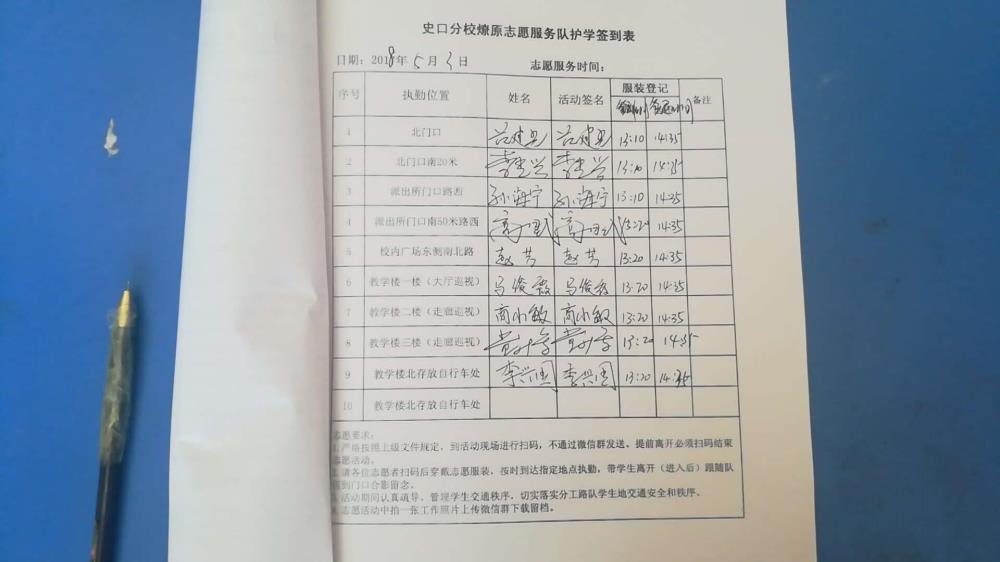 史口分校燎原志愿服务队护学签到表
日期：2018年5月3日 志愿服务时间：
序号 执勤位置 姓名 活动签名 服装登记 备注
1 北门口 13:10 14:35
2 北门口南20米 13:10 14:35
3 派出所门口路西 孙海宁 孙海宁 13:10 14:35
4 派出所门口南50米路西 13:20 14:35
5 校内广场东侧南北路 赵芳 赵芳 13:20 14:35
6 教学楼一楼（大厅巡视） 马俊霞 马俊霞 13:20 14:35
7 教学楼二楼（走廊巡视） 商小敏 商小敏 13:20 14:35
8 教学楼三楼（走廊巡视） 13:20 14:35
9 教学楼北存放自行车处 13:20 14:35
10 教学楼北存放自行车处
志愿要求：
1.严格按照上级文件规定，到活动现场进行扫码，不通过微信群发送。提前离开必须扫码结束
志愿活动。
2.请各位志愿者扫码后穿戴志愿服装，按时到达指定地点执勤，带学生离开（进入后）跟随队
到门口合影留念。
3.活动期间认真疏导、管理学生交通秩序，切实落实分工路队学生地交通安全和秩序。
4.志愿活动中拍一张工作照片上传微信群下载留档。